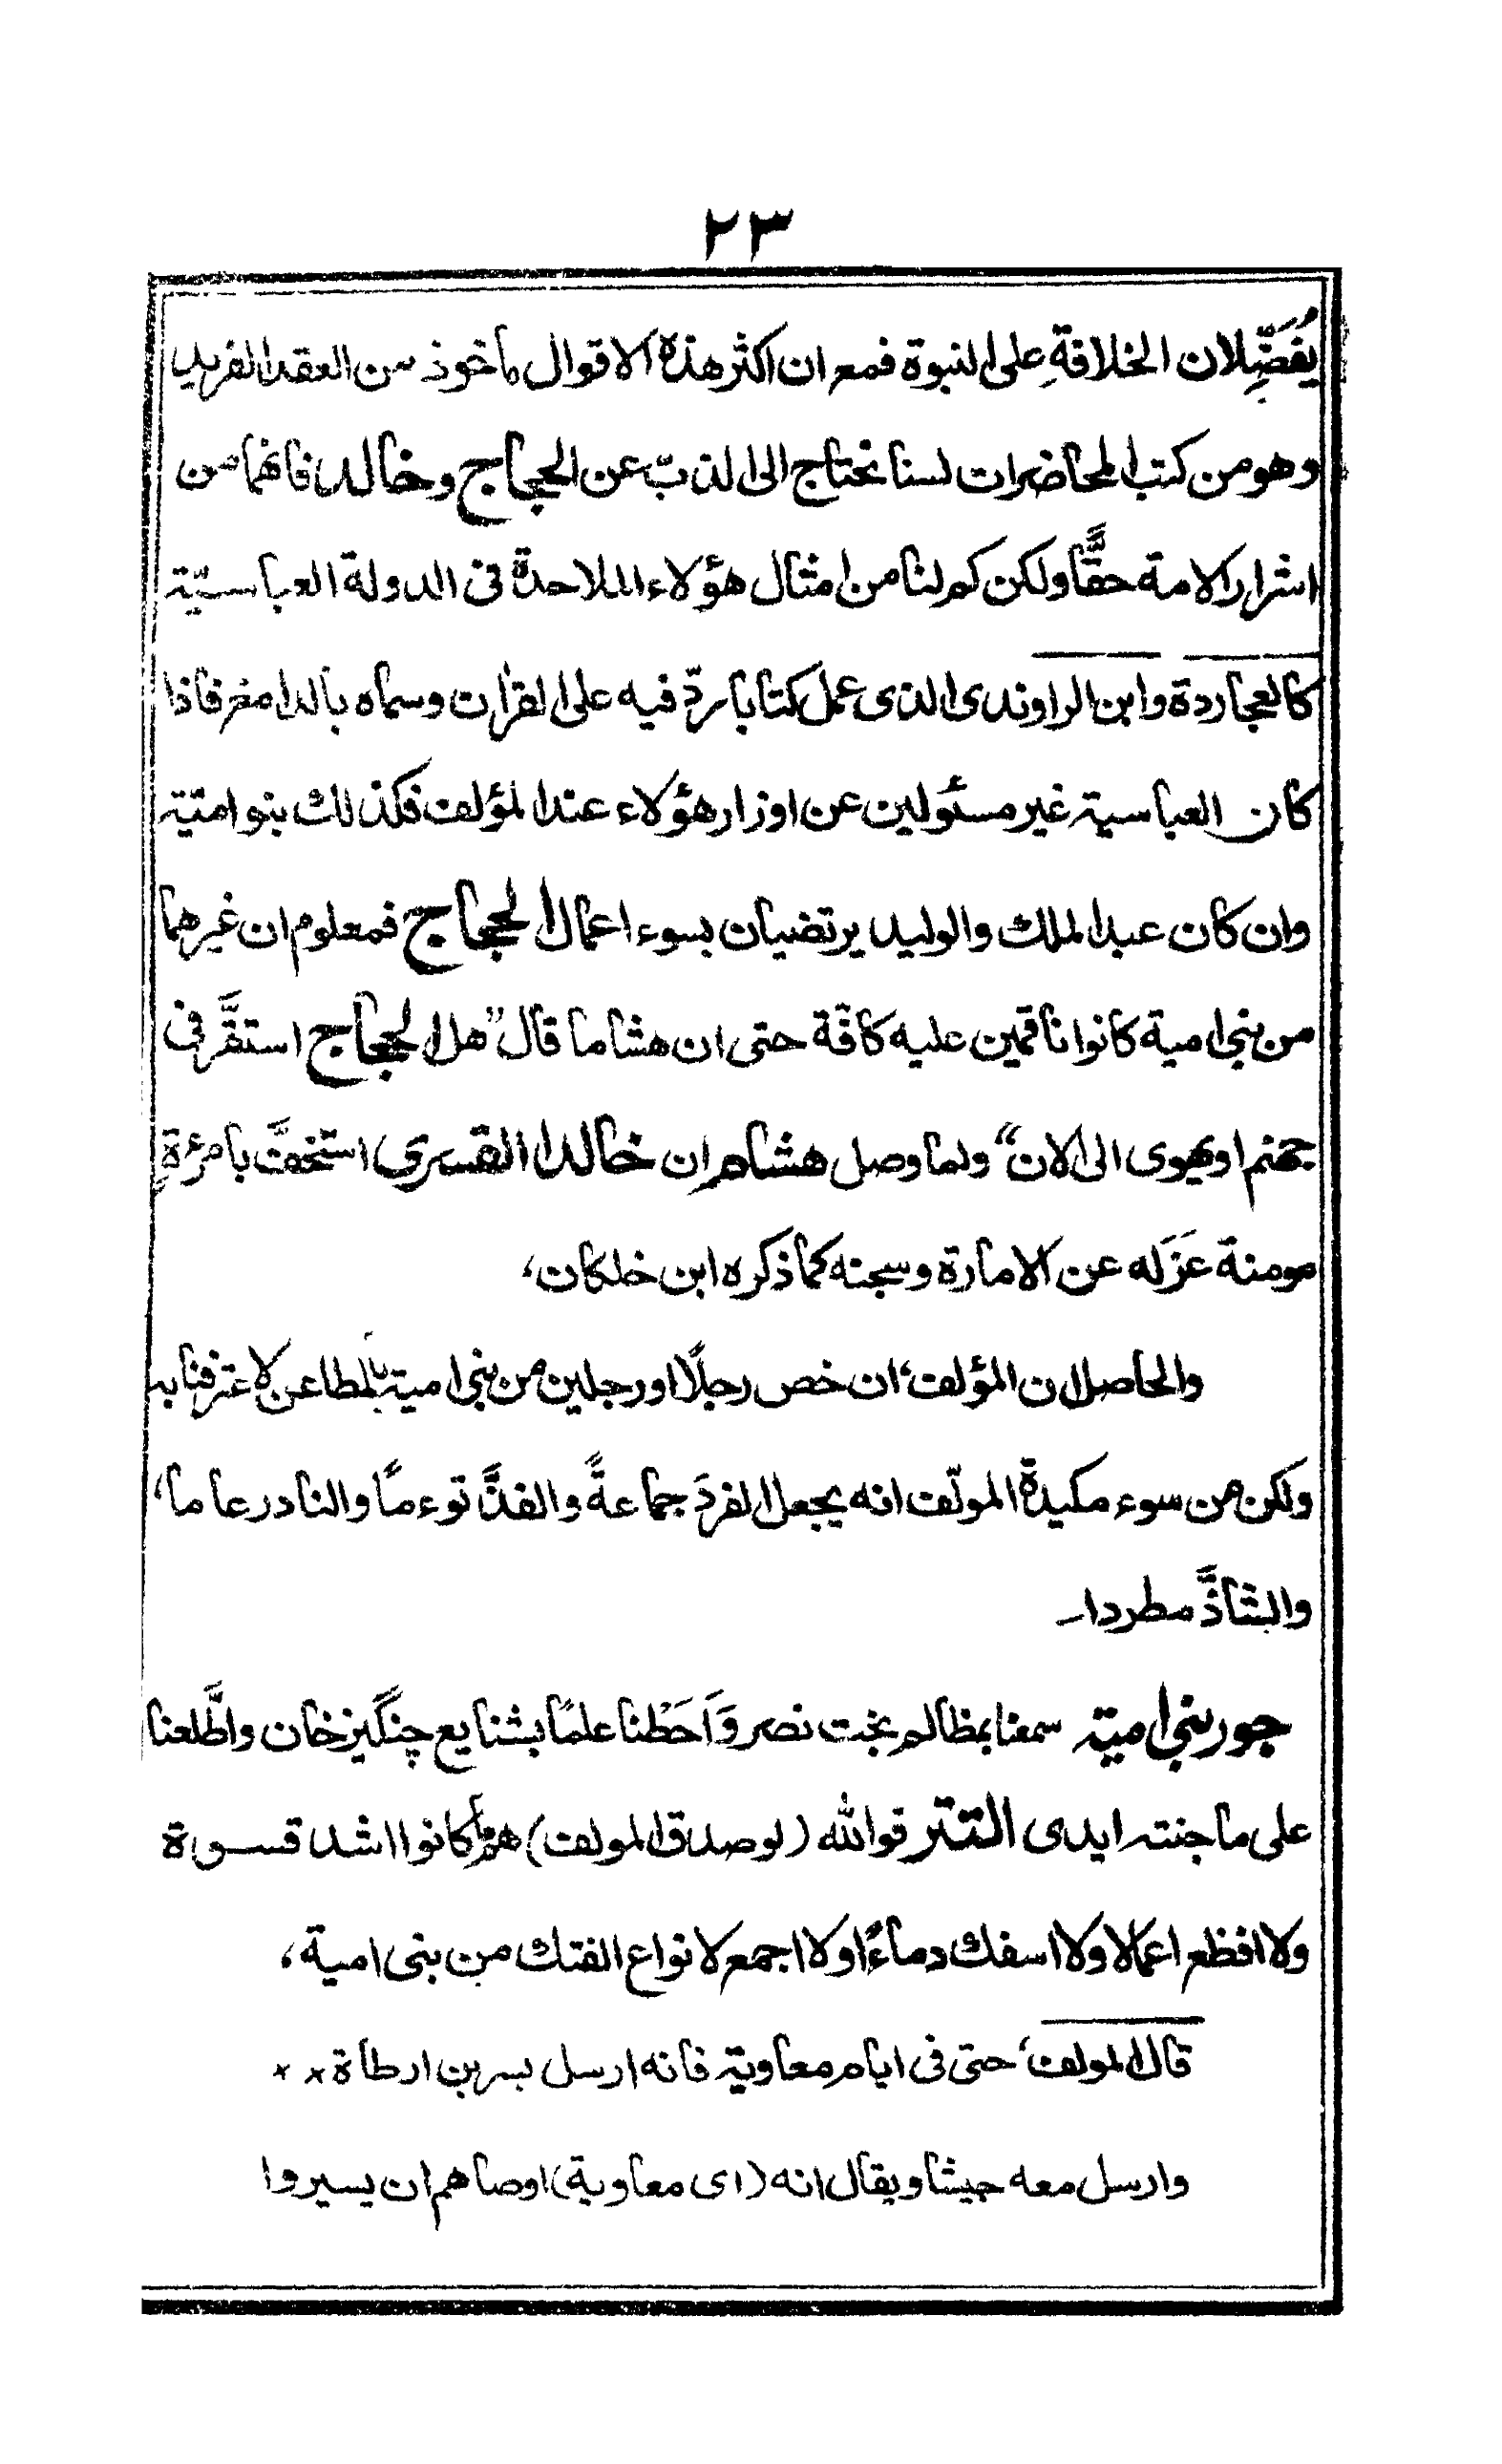 ٢٣
يُفَضِّلان الخلافةِ على النبوة فمع ان اكثر هذه الاقوال ماخوذ من العقد الفريد
وهو من كتب المحاضرات لسنا نحتاج الى الذبّ عن الحجاج وخالد فانهما من
اشرار الامة حقًّا ولكن كم لنا من امثال هؤلاء الملاحدة فى الدولة العباسيّة
كالعجاردة وابن الراوندى الذى عمل كتابا يردّ فيه على القرآن وسماه بالدامغ فاذا
كان العباسية غير مسئولين عن اوزار هؤلاء عند المؤلف فكذلك بنو اميّة
وان كان عبد الملك والوليد يرتضيان بسوء اعمال الحجاج فمعلوم ان غيرهما
من بنى امية كانوا ناقمين عليه كافّة حتى ان هشاما قال "هل الحجاج استقَّر فى
جهنم او يهوى الى الان" ولما وصل هشام ان خالدا القسري استخفَّ بامرءةٍ
مومنة عَزَله عن الامارة وسجنه كما ذكره ابن خلكان،
والحاصل ان المؤلف، ان خص رجلًا او رجلين من بنى امية بالمطاعن لاعترفنا به
ولكن من سوء مكيدة المولّف انه يجعل الفردَ جماعةً والفذَّ توءمًا والنادر عاما،
والشاذَّ مطردا۔
جور بنى امية سمعنا بمظالم بخت نصر وَاَحَطْنا علمًا بشنايع چنگيز خان واطَّلعنا
على ما جنته ايدى التتر فوالله (لو صدق المولف) هم ما كانوا اشد قسوة
ولا افظع اعمالا ولا اسفك دماءً او لا اجمع لانواع الفتك من بنى امية،
قال المولف، حتى فى ايام معاوية فانه ارسل بسر بن ارطاة × ×
وارسل معه جيشا ويقال انه (اى معاوية) اوصاهم ان يسيروا